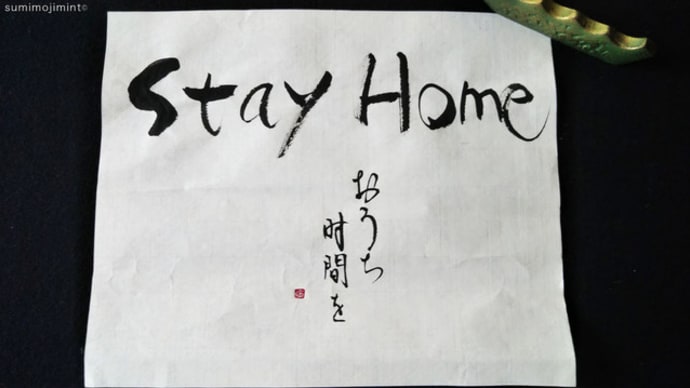 sumimojimint©
Stay Home
おうち
时間を